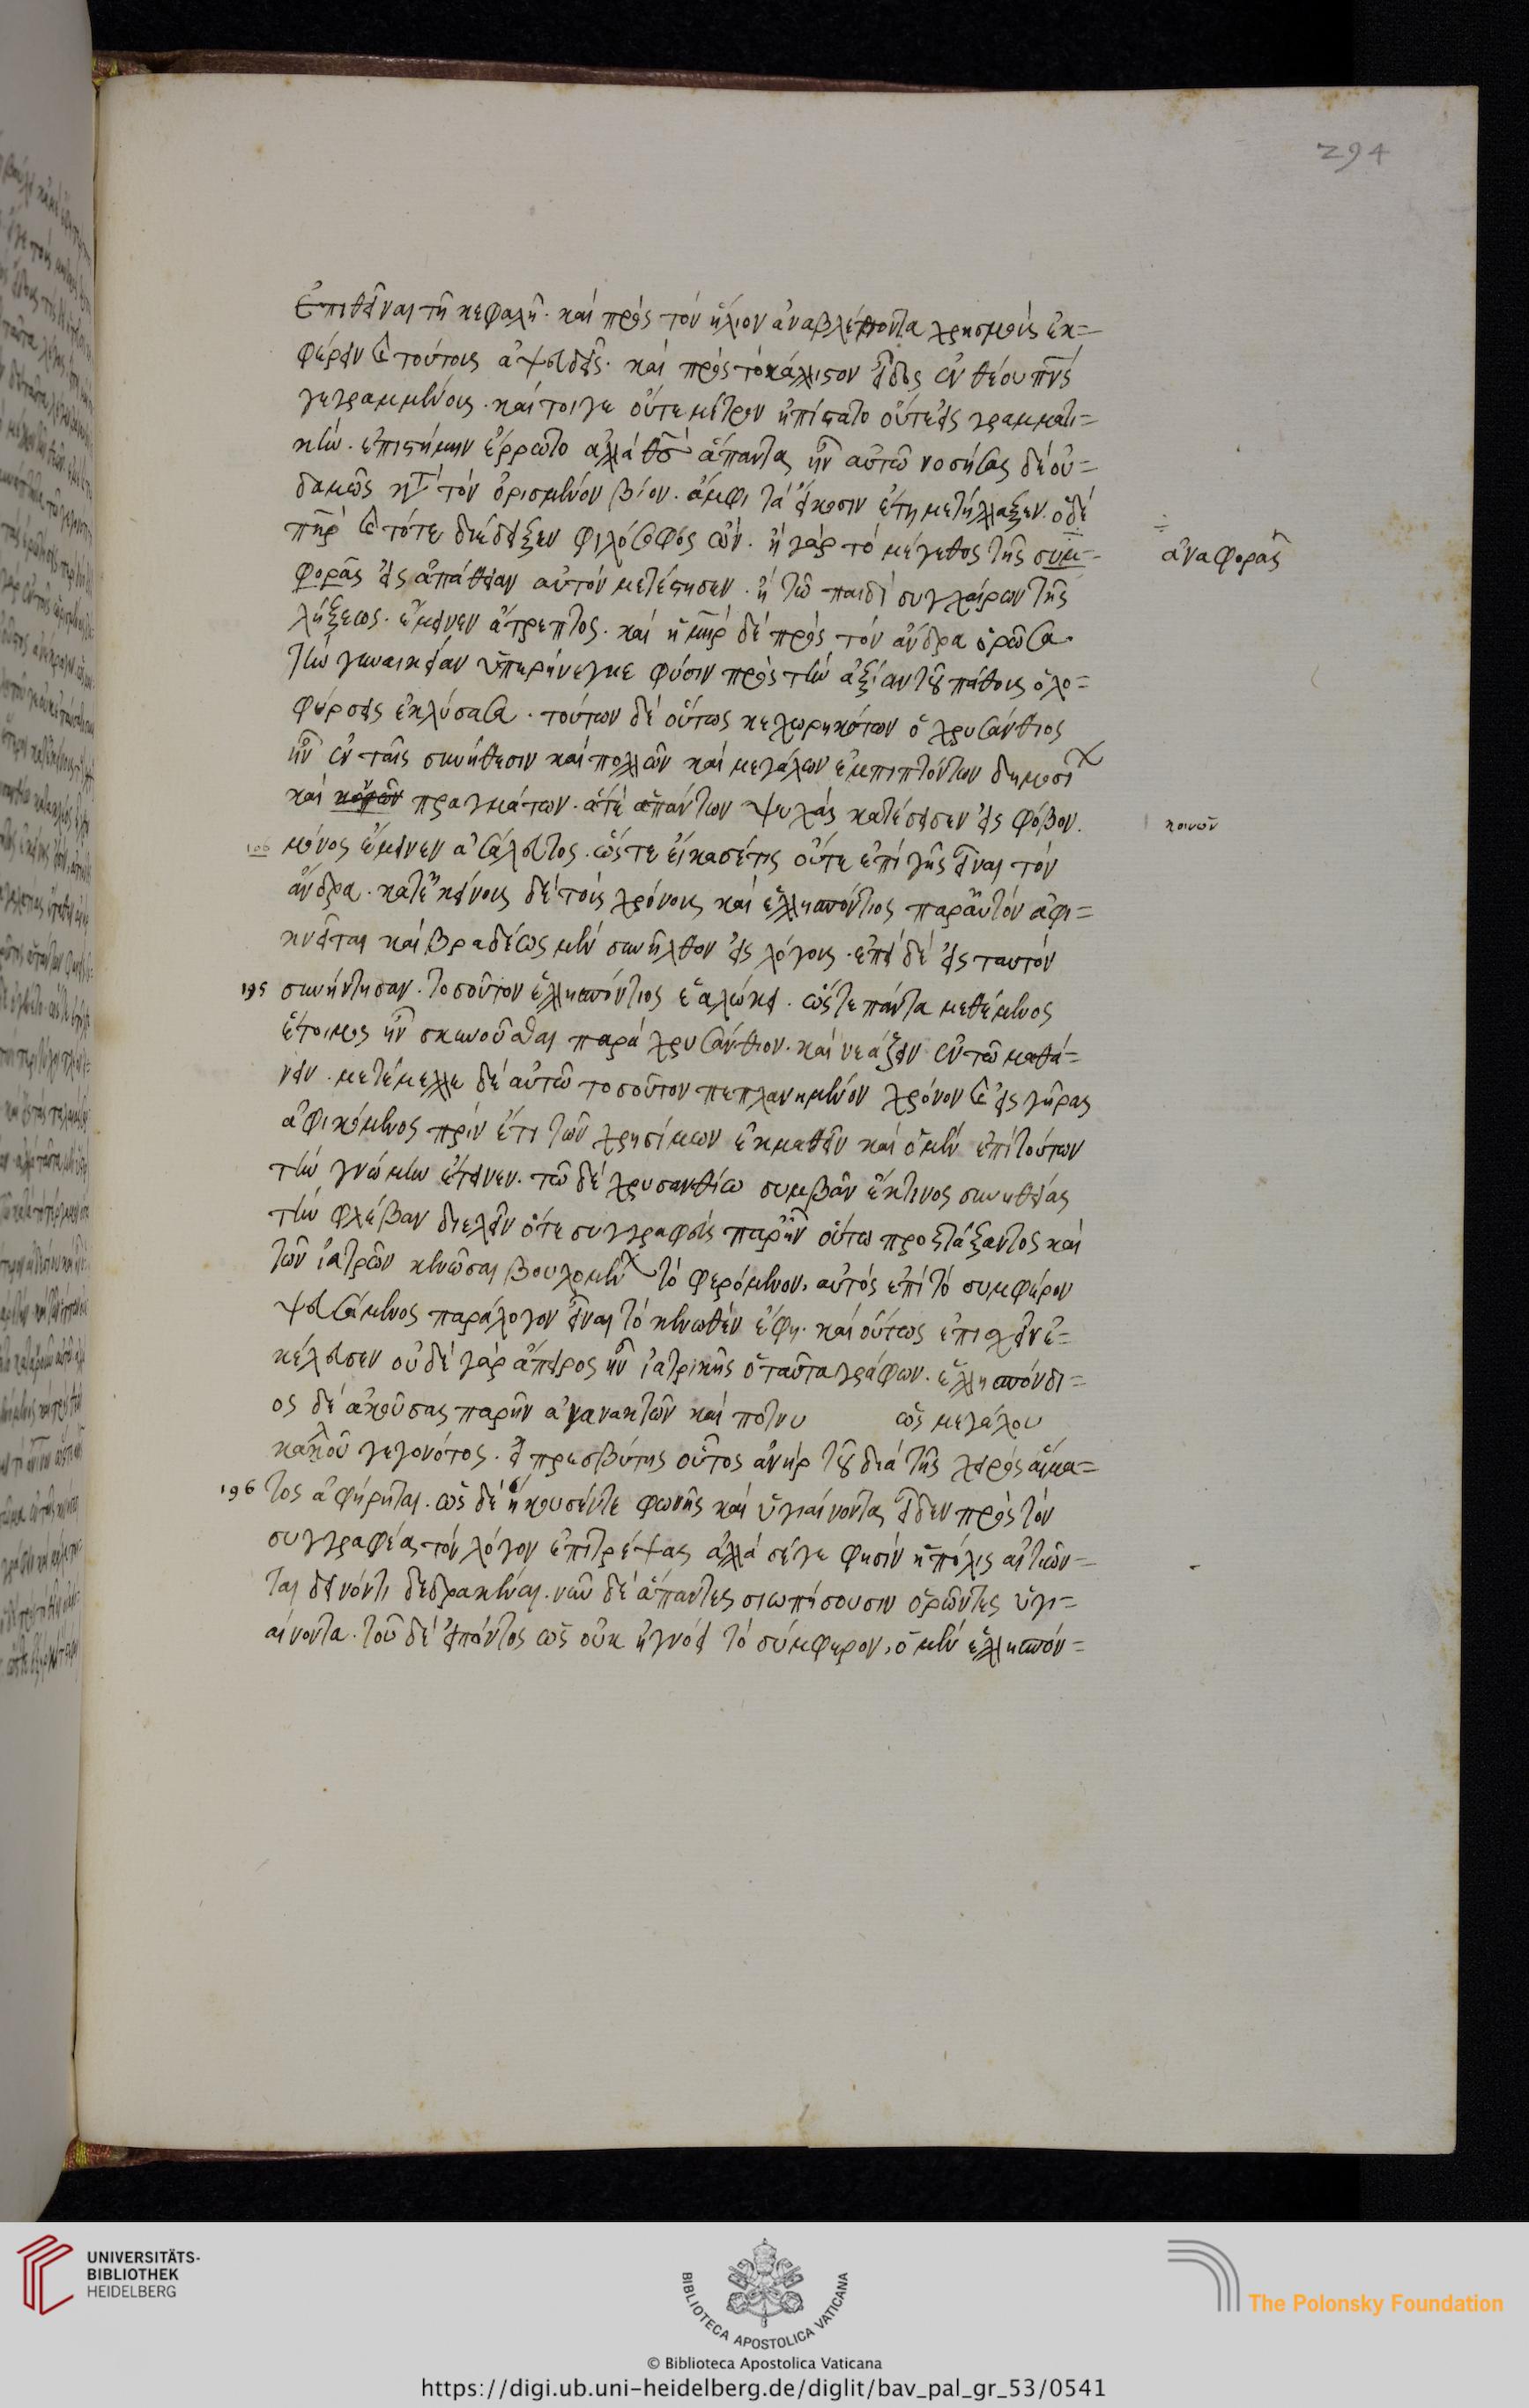 294
ἐπιθεῖναι τῆ κεφαλῆ. καὶ πρὸς τὸν ἥλιον ἀναβλέποντα χρησμοὺς ἐκ=
φέρειν καὶ τούτους ἀψευδεῖς. καὶ πρὸς τὸ κάλλιστον εἶδος ἐν θέου πν̅ς
γεγραμμένους. καί τοιγε οὔτε μέτρον ἠπίστατο οὔτε εἰς γραμματι=
κὴν. ἐπιστήμην ἔρρωτο ἀλλὰ θσ̅ ἅπαντα ἦν αὐτῶ νοσήσας δὲ οὐ=
δαμῶς κτ̀ τὸν ὁρισμένον βίον. ἀμφὶ τὰ εἴκοσιν ἔτη μετήλλαξεν. ὁ δὲ
πη̅ρ καὶ τότε διέδειξεν φιλόσοφος ὤν. ἢ γὰρ τὸ μέγεθος τῆς συμ=
ἀναφορᾶς
φορᾶς εἰς ἀπάθειαν αὐτὸν μετέστησεν. ἢ τῶ παιδὶ συγχαίρων τῆς
λήξεως. ἔμεινεν ἄτρεπτος. καὶ ἡ μη̅ρ δὲ πρὸς τὸν ἄνδρα ὁρῶσα.
τὴν γυναικείαν ὑπερήνεγκε φύσιν πρὸς τὴν ἀξίαν τοῦ πάθους ὀλο=
φύρσεις ἐκλύσασα. τούτων δὲ οὕτως κεχωρηκότων ὁ χρυσάνθιος
ἦν ἐν ταῖς συνήθεσιν καὶ πολλῶν καὶ μεγάλων ἐμπιπτόντων δημοσί
καὶ πραγμάτων. ἅτε ἁπάντων ψυχὰς κατέσεισεν εἰς φόβον.
κοινῶν
μόνος ἔμεινεν ἀσάλευτος. ὥστε εἰκασέ τις οὔτε ἐπὶ γῆς εἶναι τὸν
ἄνδρα. κατ' ἐκείνους δὲ τοὺς χρόνους καὶ ἑλλησπόντιος παρ' αὐτὸν ἀφι=
κνεῖται καὶ βραδέως μὲν συνῆλθον εἰς λόγους. ἐπεὶ δὲ εἰς ταυτὸν
195 συνήντησαν. τοσοῦτον ἑλλησπόντιος ἑαλώκει. ὥστε πάντα μεθέμενος
ἕτοιμος ἦν σκηνοῦσθαι παρὰ χρυσάνθιον. καὶ νεάζειν ἐν τῶ μαθά=
νειν. μετέμελλε δὲ αὐτῶ τοσοῦτον πεπλανημένον χρόνον καὶ εἰς γῆρας
ἀφικόμενος πρίν ἔτι τῶν χρησίμων ἐκμαθεῖν καὶ ὁ μὲν ἐπὶ τούτων
τὴν γνώμην ἔτεινεν. τῶ δὲ χρυσανθίω συμβὰν ἔκ τινος συνηθείας
τὴν φλέβαν διελεῖν ὅτε συγγραφεὺς παρῆν οὕτω προστάξαντος καὶ
τῶν ἰατρῶν κενῶσαι βουλομέν τὸ φερόμενον, αὐτὸς ἐπὶ τὸ συμφέρον
ψευσάμενος παράλογον εἶναι τὸ κενωθὲν ἔφη. καὶ οὕτως ἐπισχεῖν ἐ=
κέλευσεν οὐδὲ γὰρ ἄπειρος ἦν ἰατρικῆς ὁ ταῦτα γράφων. ἑλλησπόνδι=
ος δὲ ἀκούσας παρῆν ἀγανακτῶν καὶ πότνυ ὡς μεγάλου
κακοῦ γεγονότος. εἰ πρεσβύτης οὗτος ἀνὴρ τοῦ διὰ τῆς χειρὸς αἵμα=
196 τος ἀφήρηται. ὡς δὲ ἤκουσέν τε φωνῆς καὶ ὑγιαίνοντας εἶδεν πρὸς τὸν
συγγραφέα τὸν λόγον ἐπιτρέψας ἀλλὰ σέ γε φησὶν ἡ πόλις αἰτιῶν=
ται δεινόν τι δεδρακέναι. νῦν δὲ ἅπαντες σιωπήσουσιν ὁρῶντες ὑγι=
αίνοντα. τοῦ δὲ εἰπόντος ὡς οὐκ ἠγνόει τὸ σύμφερον, ὁ μὲν ἑλλησπόν=
UNIVERSITÄTS-
BIBLIOTHEK
HEIDELBERG
BIBLIOTECA APOSTOLICA VATICANA
© Biblioteca Apostolica Vaticana
The Polonsky Foundation
https://digi.ub.uni-heidelberg.de/diglit/bav_pal_gr_53/0541